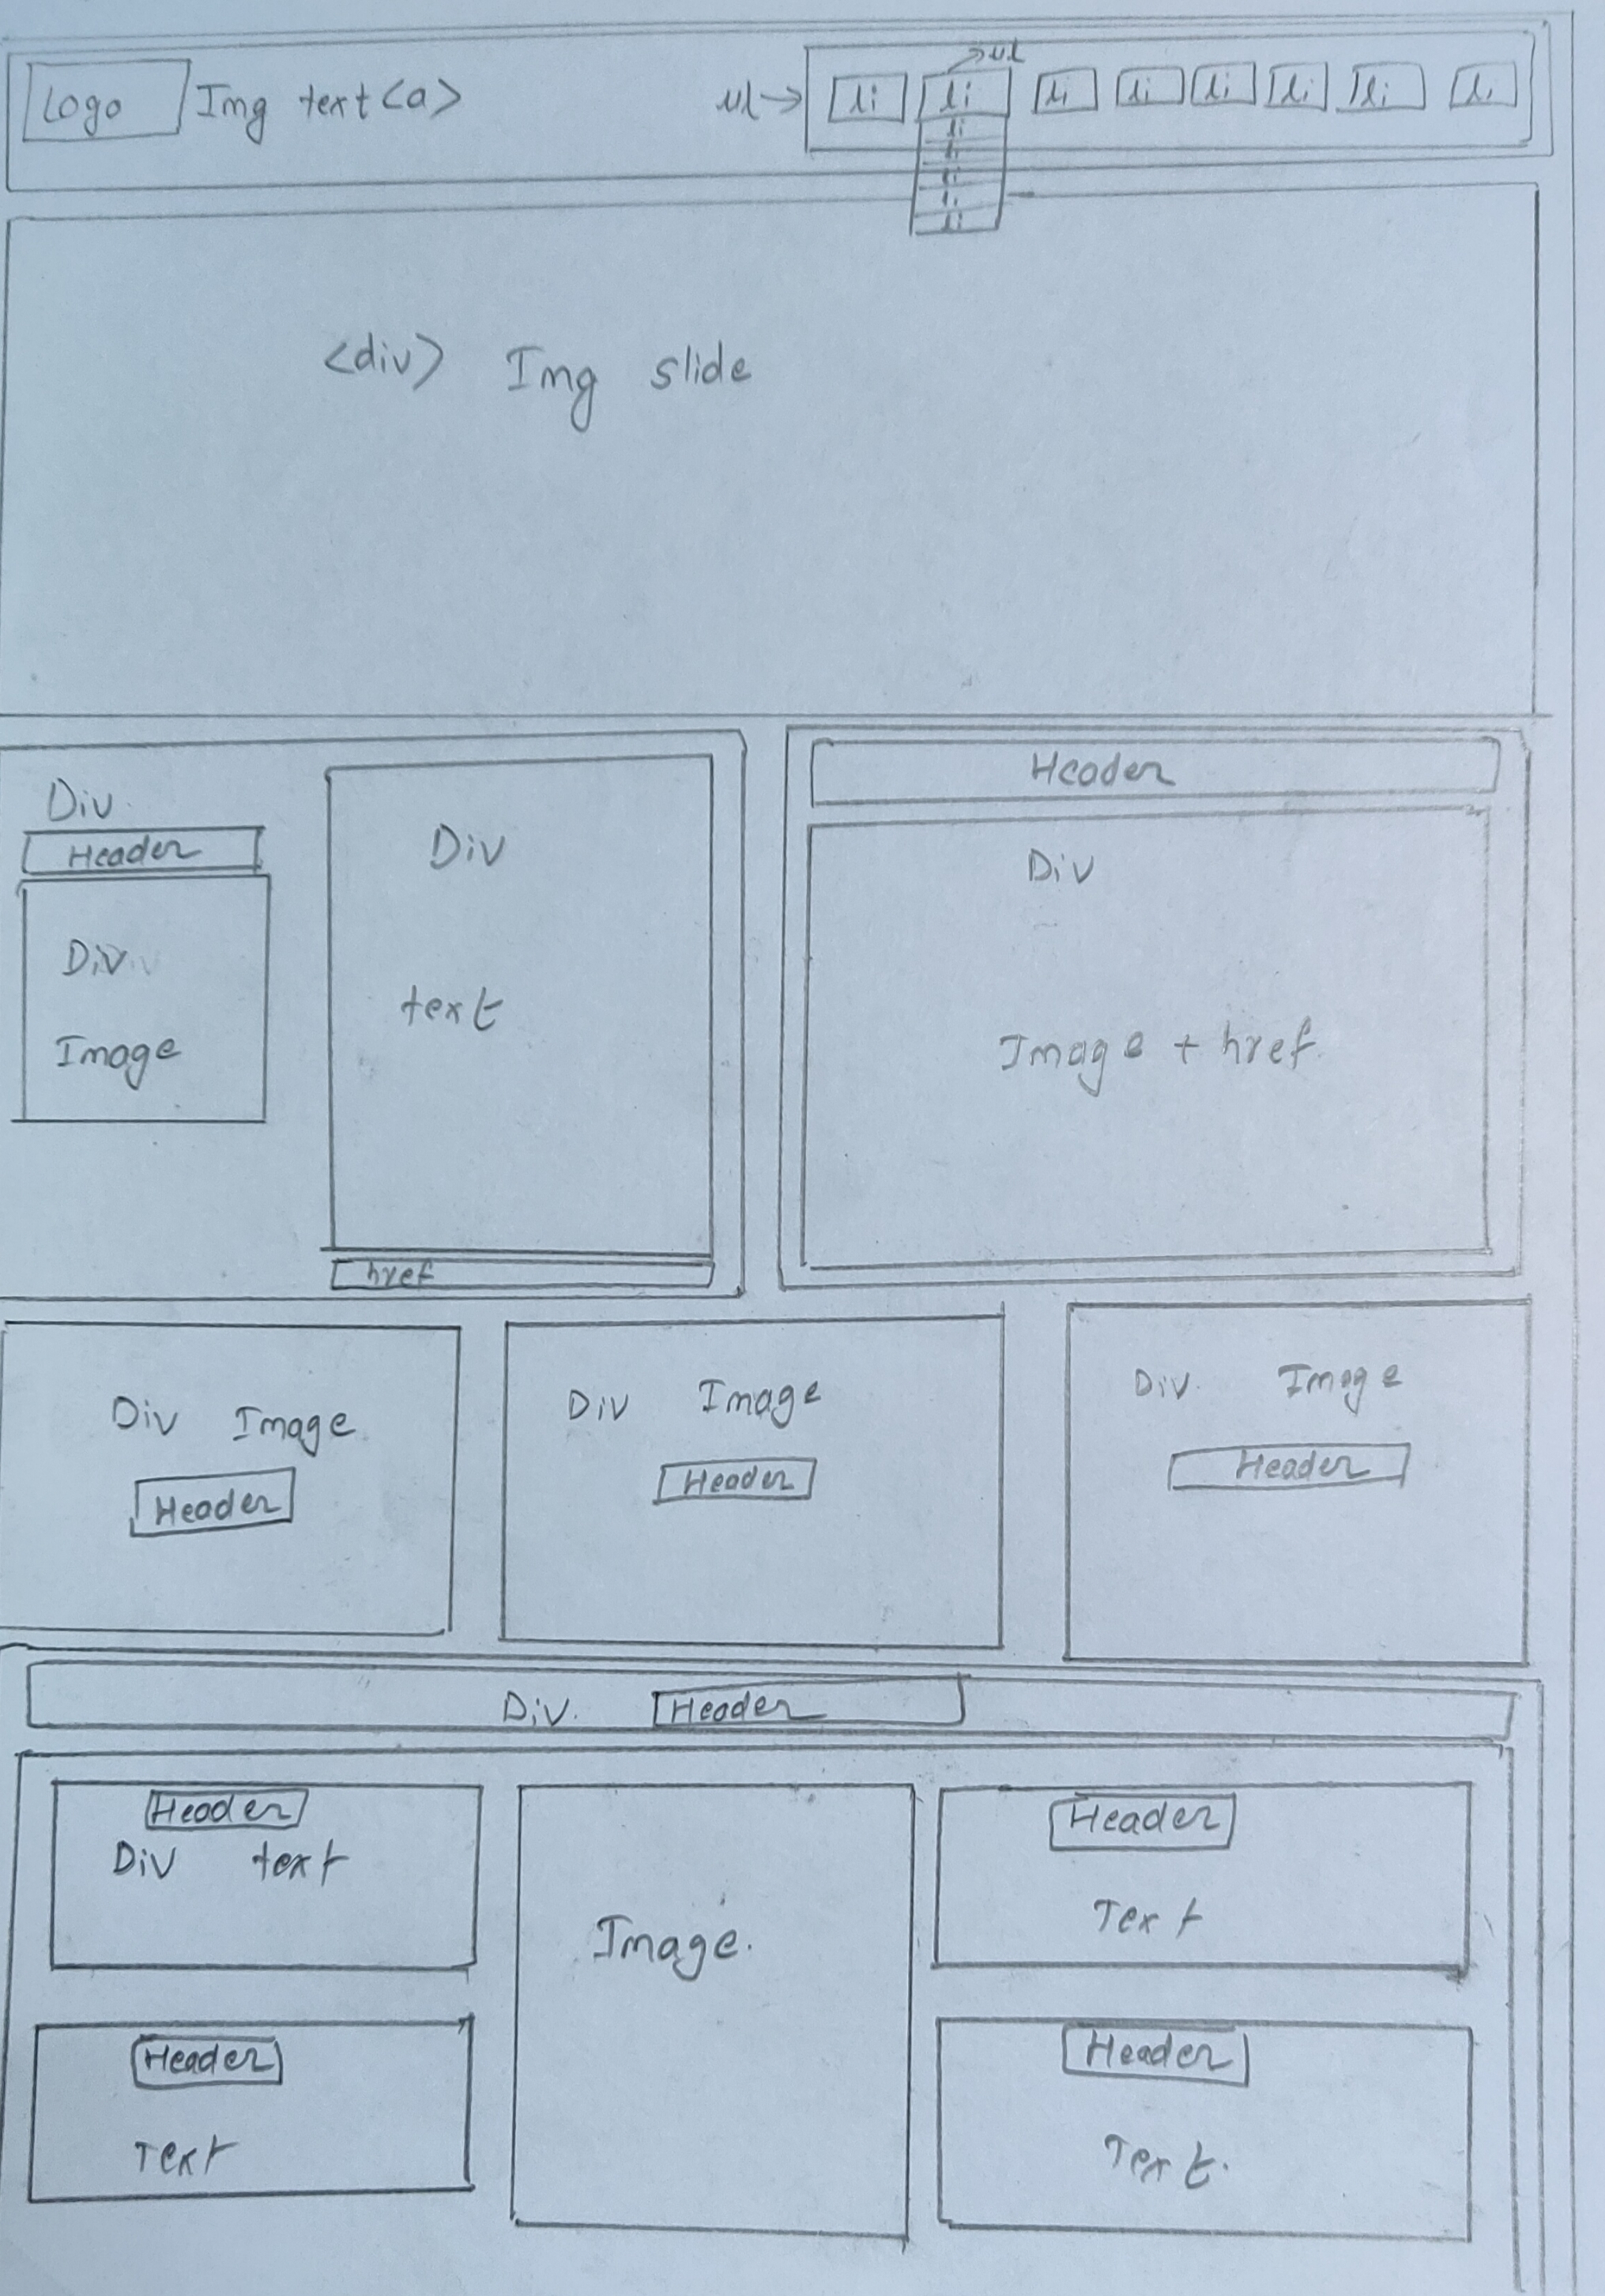 Logo Img text <a> ul→ li li li li li li li li
→ul
li
li
li
li
li
<div> Img slide
Div.
Header
Div
Image
Div
text
href
Header
Div
Image + href.
Div Image
Header
Div Image
Header
Div. Image
Header
Div. Header
Header
Div text
Image.
Header
Text
Header
Text
Header
Text.